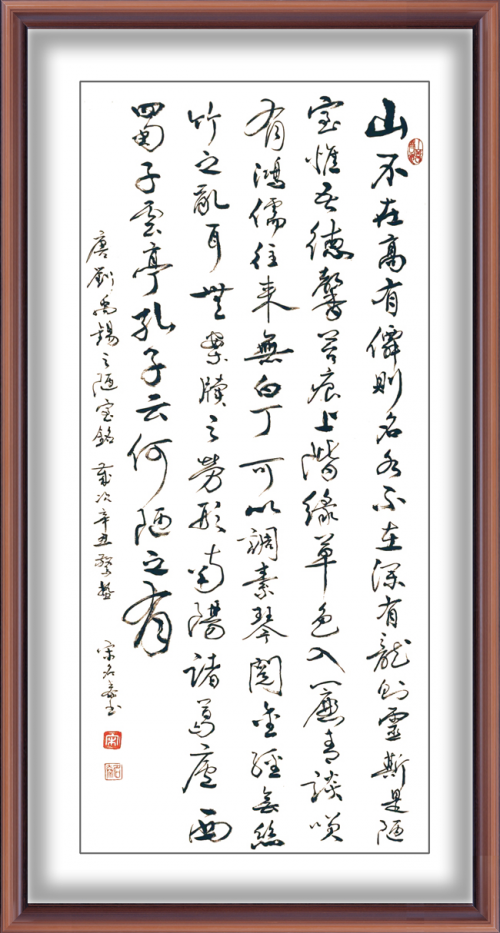 山不在高有僊則名水不在深有龍則靈斯是陋
室惟吾德馨苔痕上階緑草色入簾青談笑
有鴻儒往來無白丁可以調素琴閲金經無絲
竹之亂耳無案牘之勞形南陽諸葛廬西
蜀子雲亭孔子云何陋之有
唐劉禹錫之陋室銘 歲次辛丑 宋書